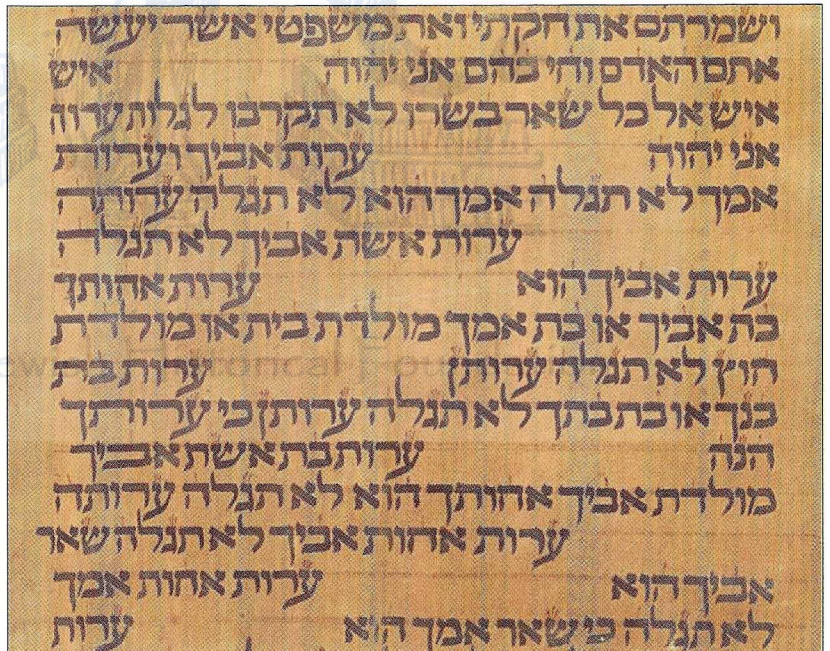 ושמרתם את חקתי ואת משפטי אשר יעשה
אתם האדם וחי בהם אני יהוה איש
איש אל כל שאר בשרו לא תקרבו לגלות ערוה
אני יהוה ערות אביך וערות
אמך לא תגלה אמך הוא לא תגלה ערותה
ערות אשת אביך לא תגלה
ערות אביך הוא ערות אחותך
בת אביך או בת אמך מולדת בית או מולדת
חוץ לא תגלה ערותן ערות בת
בנך או בת בתך לא תגלה ערותן כי ערותך
הנה ערות בת אשת אביך
מולדת אביך אחותך הוא לא תגלה ערותה
ערות אחות אביך לא תגלה שאר
אביך הוא ערות אחות אמך
לא תגלה כי שאר אמך הוא ערות